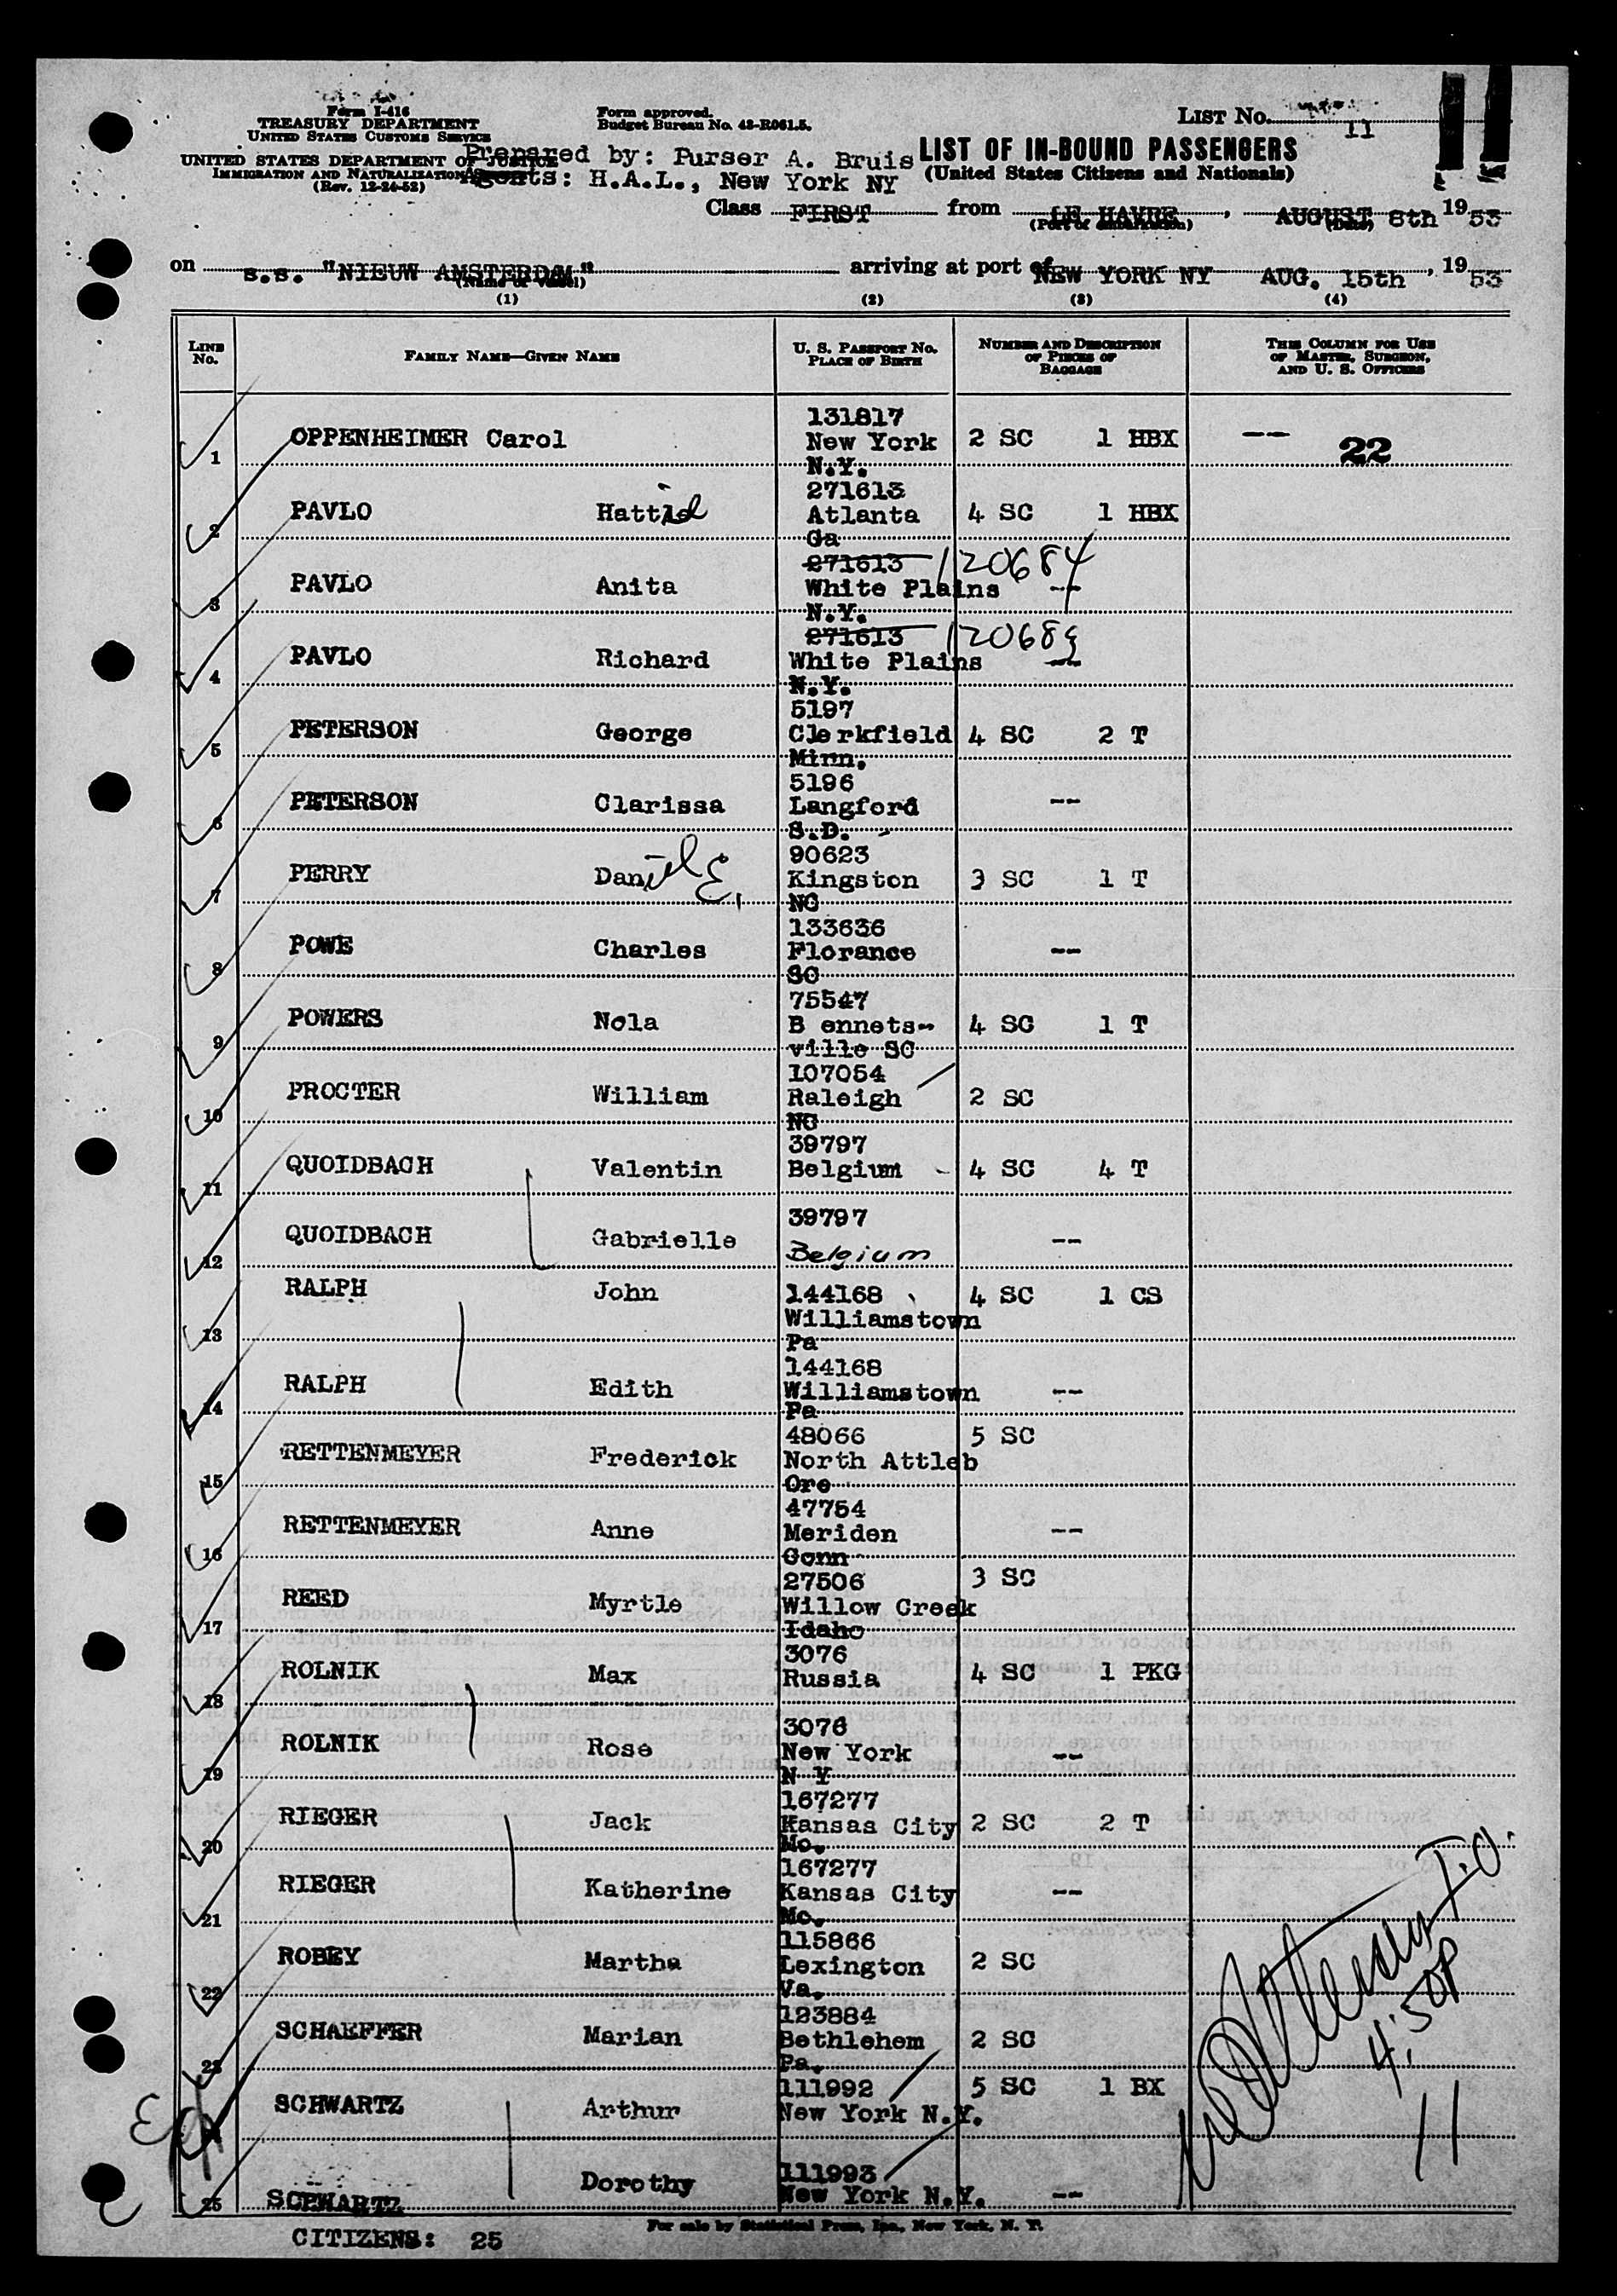 Form I-416
TREASURY DEPARTMENT
UNITED STATES CUSTOMS SERVICE
UNITED STATES DEPARTMENT OF JUSTICE
IMMIGRATION AND NATURALIZATION
(Rev. 12-24-52)
Form approved.
Budget Bureau No. 43-R061.5.
Prepared by: Purser A. Bruis
Agents: H.A.L., New York NY
LIST No. 11
LIST OF IN-BOUND PASSENGERS
(United States Citizens and Nationals)
Class FIRST from LE HAVRE, AUGUST 8th, 1953
(Port of embarkation) (Date)
on s.s. "NIEUW AMSTERDAM" arriving at port of NEW YORK NY AUG. 15th, 1953
(Name of Vessel)
(1) (2) (3) (4)
LINE No. FAMILY NAME—GIVEN NAME U. S. PASSPORT No. PLACE OF BIRTH NUMBER AND DESCRIPTION OF PIECES OF BAGGAGE THIS COLUMN FOR USE OF MASTER, SURGEON, AND U. S. OFFICERS
1 OPPENHEIMER Carol 131817 New York N.Y. 2 SC 1 HBX -- 22
2 PAVLO Hattie 271613 Atlanta Ga 4 SC 1 HBX
3 PAVLO Anita 271613 120684 White Plains N.Y. --
4 PAVLO Richard 271613 White Plains N.Y. --
5 PETERSON George 5197 Clerkfield Minn. 4 SC 2 T
6 PETERSON Clarissa 5196 Langford S.D. --
7 PERRY Daniel E. 90623 Kingston NC 3 SC 1 T
8 POWE Charles 133636 Florance SC --
9 POWERS Nola 75547 B ennets-ville SC 4 SC 1 T
10 PROCTER William 107054 Raleigh NC 2 SC
11 QUOIDBACH Valentin 39797 Belgium 4 SC 4 T
12 QUOIDBACH Gabrielle 39797 Belgium --
13 RALPH John 144168 Williamstown Pa 4 SC 1 CS
14 RALPH Edith 144168 Williamstown Pa --
15 RETTENMEYER Frederick 48066 North Attleb Ore 5 SC
16 RETTENMEYER Anne 47754 Meriden Conn --
17 REED Myrtle 27506 Willow Creek Idaho 3 SC
18 ROLNIK Max 3076 Russia 4 SC 1 PKG
19 ROLNIK Rose 3076 New York N Y --
20 RIEGER Jack 167277 Kansas City Mo. 2 SC 2 T
21 RIEGER Katherine 167277 Kansas City Mo. --
22 ROBEY Martha 115866 Lexington Va. 2 SC
23 SCHAEFFER Marian 123884 Bethlehem Pa. 2 SC
24 SCHWARTZ Arthur 111992 New York N.Y. 5 SC 1 BX
25 SCHWARTZ Dorothy 111993 New York N.Y. --
4:50P
11
For sale by Statistical Press, Inc., New York, N. Y.
CITIZENS: 25